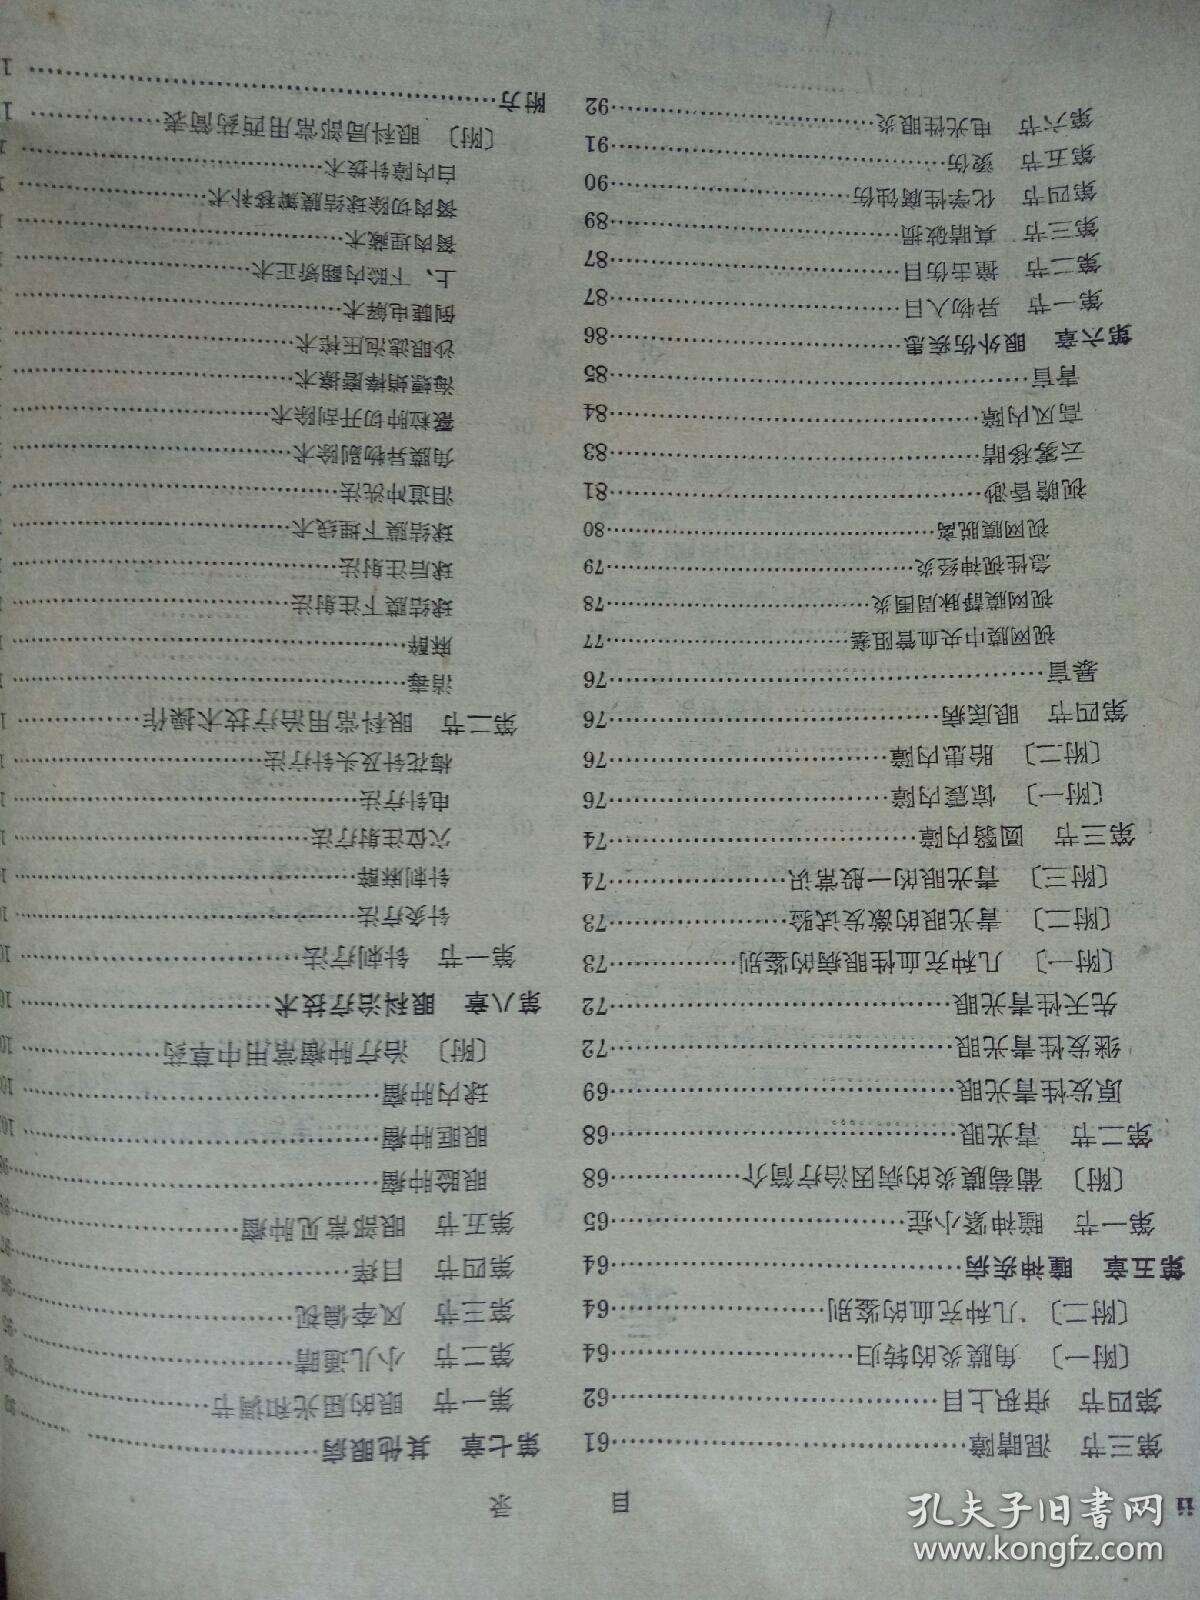 ii
目 录
第三节 混睛障……61
第四节 疳积上目……62
〔附一〕 角膜炎的转归……64
〔附二〕 几种充血的鉴别……64
第五章 瞳神疾病……64
第一节 瞳神紧小症……65
〔附〕 葡萄膜炎的病因治疗简介……68
第二节 青光眼……68
原发性青光眼……69
继发性青光眼……72
先天性青光眼……72
〔附一〕 几种充血性眼病的鉴别……73
〔附二〕 青光眼的激发试验……73
〔附三〕 青光眼的一般常识……74
第三节 圆翳内障……74
〔附一〕 惊震内障……76
〔附二〕 胎患内障……76
第四节 眼底病……76
暴盲……76
视网膜中央血管阻塞……77
视网膜静脉周围炎……78
急性视神经炎……79
视网膜脱离……80
视瞻昏渺……81
云雾移睛……83
高风内障……84
青盲……85
第六章 眼外伤疾患……86
第一节 异物入目……87
第二节 撞击伤目……87
第三节 真睛破损……89
第四节 化学性腐蚀伤……90
第五节 烫伤……91
第六节 电光性眼炎……92
第七章 其他眼病……
第一节 眼的屈光和调节……
第二节 小儿通睛……
第三节 风牵偏视……
第四节 目痒……
第五节 眼部常见肿瘤……
眼睑肿瘤……
眼眶肿瘤……
球内肿瘤……
〔附〕 治疗肿瘤常用中草药……
第八章 眼科治疗技术……
第一节 针刺疗法……
针灸疗法……
针刺麻醉……
穴位注射疗法……
电针疗法……
梅花针及头针疗法……
第二节 眼科常用治疗技术操作……
消毒……
麻醉……
球结膜下注射法……
球后注射法……
球结膜下埋线术……
泪道冲洗法……
角膜异物剔除术……
霰粒肿切开刮除术……
海螵蛸棒磨擦术……
沙眼滤泡压榨术……
倒睫电解术……
上、下睑内翻矫正术……
胬肉埋藏术……
胬肉切除球结膜瓣移补术……
白内障针拨术……
〔附〕 眼科局部常用西药简表……
附方……
孔夫子旧书网
www.kongfz.com